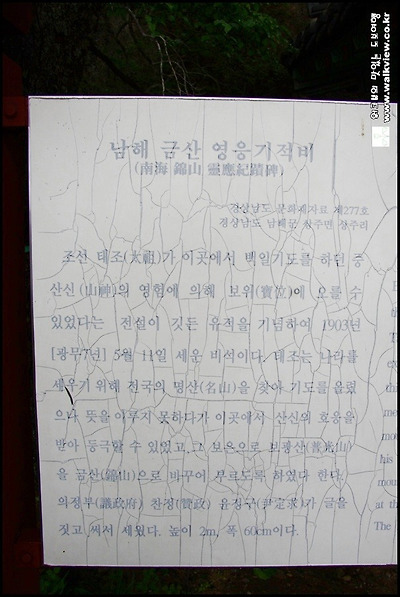 남해 금산 영응기적비
(南海 錦山 靈應紀蹟碑)
경상남도 문화재자료 제277호
경상남도 남해군 상주면 상주리
조선 태조(太祖)가 이곳에서 백일기도를 하던 중
산신(山神)의 영험에 의해 보위(寶位)에 오를 수
있었다는 전설이 깃든 유적을 기념하여 1903년
[광무7년] 5월 11일 세운 비석이다. 태조는 나라를
세우기 위해 전국의 명산(名山)을 찾아 기도를 올렸
으나 뜻을 이루지 못하다가 이곳에서 산신의 호응을
받아 등극할 수 있었고 그 보은으로 보광산(普光山)
을 금산(錦山)으로 바꾸어 부르도록 하였다 한다.
의정부(議政府) 찬정(贊政) 윤정구(尹定求)가 글을
짓고 써서 세웠다. 높이 2m, 폭 60cm이다.
his
at th
The
www.walkview.co.kr